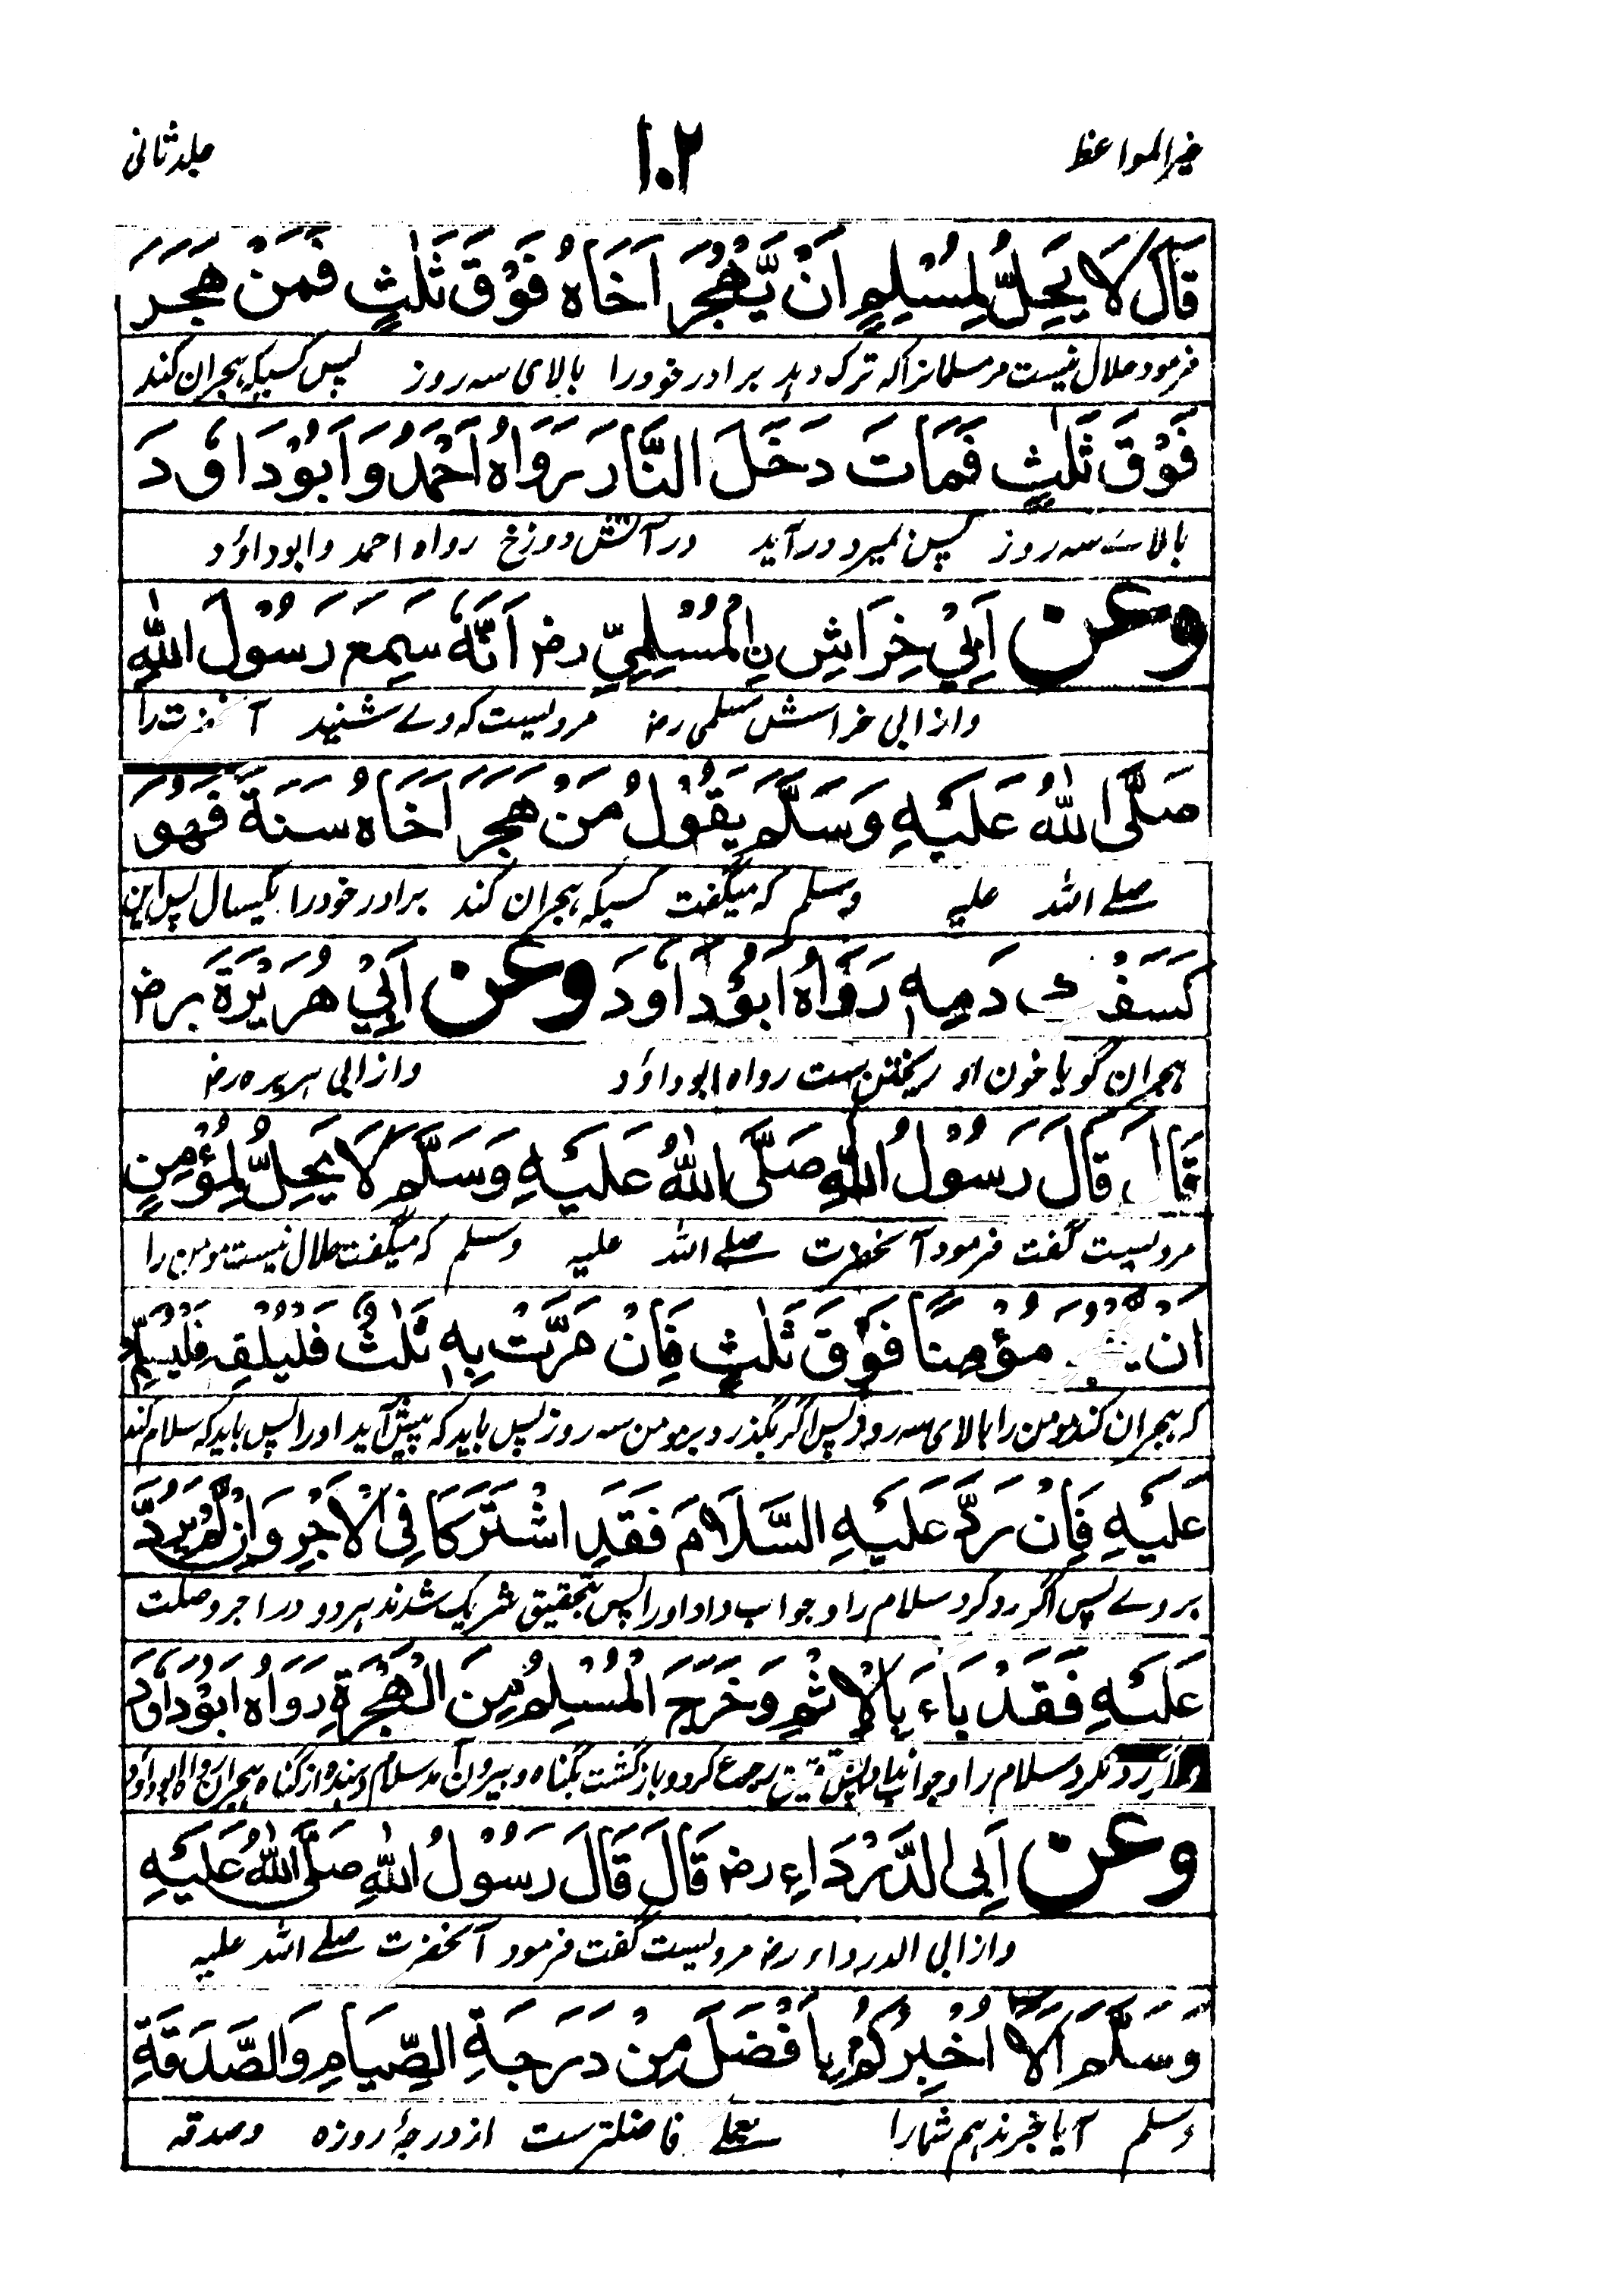 خیر المواعظ ۱۰۲ جلد ثانی
قَالَ لَا یَحِلُّ لِمُسْلِمٍ اَنْ یَّهْجُرَ اَخَاهُ فَوْقَ ثَلٰثٍ فَمَنْ هَجَرَ
فرمود حلال نیست مر مسلمانرا که ترک دهد برادر خود را بالای سه روز پس کسیکه هجران کند
فَوْقَ ثَلٰثٍ فَمَاتَ دَخَلَ النَّارَ رَوَاهُ اَحْمَدُ وَاَبُوْدَاوٗدَ
بالاے سه روز پس بمیرد در آید در آتش دوزخ رواه احمد و ابوداؤد
وعن اَبِیْ خِرَاشِ نِ الْمُسْلِمِیِّ رض اَنَّهٗ سَمِعَ رَسُوْلَ اللّٰهِ
و از ابی خراش مسلمی رض مرویست که وے شنید آنحضرت را
صَلَّی اللّٰهُ عَلَیْهِ وَسَلَّمَ یَقُوْلُ مَنْ هَجَرَ اَخَاهُ سَنَةً فَهُوَ
صلے الله علیه وسلم که میگفت کسیکه هجران کند برادر خود را یکسال پس این
کَسَفْكِ دَمِهٖ رَوَاهُ اَبُوْدَاوٗدَ وعن اَبِیْ هُرَیْرَةَ رض
هجران گویا خون او ریختن ست رواه ابوداؤد و از ابی هریره رض
قَالَ قَالَ رَسُوْلُ اللّٰهِ صَلَّی اللّٰهُ عَلَیْهِ وَسَلَّمَ لَا یَحِلُّ لِمُؤْمِنٍ
مرویست گفت فرمود آنحضرت صلے الله علیه وسلم که میگفت حلال نیست مومن را
اَنْ مُؤْمِنًا فَوْقَ ثَلٰثٍ فَاِنْ مَرَّتْ بِهٖ ثَلٰثٌ فَلْیَلْقِهٖ فَلْیُسَلِّمْ
که هجران کند مومن را بالای سه روز پس اگر بگذرد بر مومن سه روز پس باید که پیش آید او را پس باید که سلام کند
عَلَیْهِ فَاِنْ رَدَّ عَلَیْهِ السَّلَامَ فَقَدِ اشْتَرَکَا فِی الْاَجْرِ وَاِنْ لَّمْ یَرُدَّ
بر وے پس اگر رد کرد سلام را و جواب داد او را پس بتحقیق شریک شدند هر دو در اجر وصلت
عَلَیْهِ فَقَدْ بَاءَ بِالْاِثْمِ وَخَرَجَ الْمُسْلِمُ مِنَ الْهَجْرَةِ رَوَاهُ اَبُوْدَاوٗدَ
نکرد سلام را و جواب رجوع کرد و باز گشت بگناه و بیرون آمد سلام دهنده از گناه هجران رواه ابوداؤد
وعن اَبِی الدَّرْدَاءِ رض قَالَ قَالَ رَسُوْلُ اللّٰهِ صَلَّی اللّٰهُ عَلَیْهِ
و از ابی الدرداء رض مرویست گفت فرمود آنحضرت صلے الله علیه
وَسَلَّمَ اَلَا اُخْبِرُکُمْ بِاَفْضَلَ مِنْ دَرَجَةِ الصِّیَامِ وَالصَّدَقَةِ
وسلم آیا خبر ندهم شما را بعملے فاضلتر ست از درجهٔ روزه و صدقه